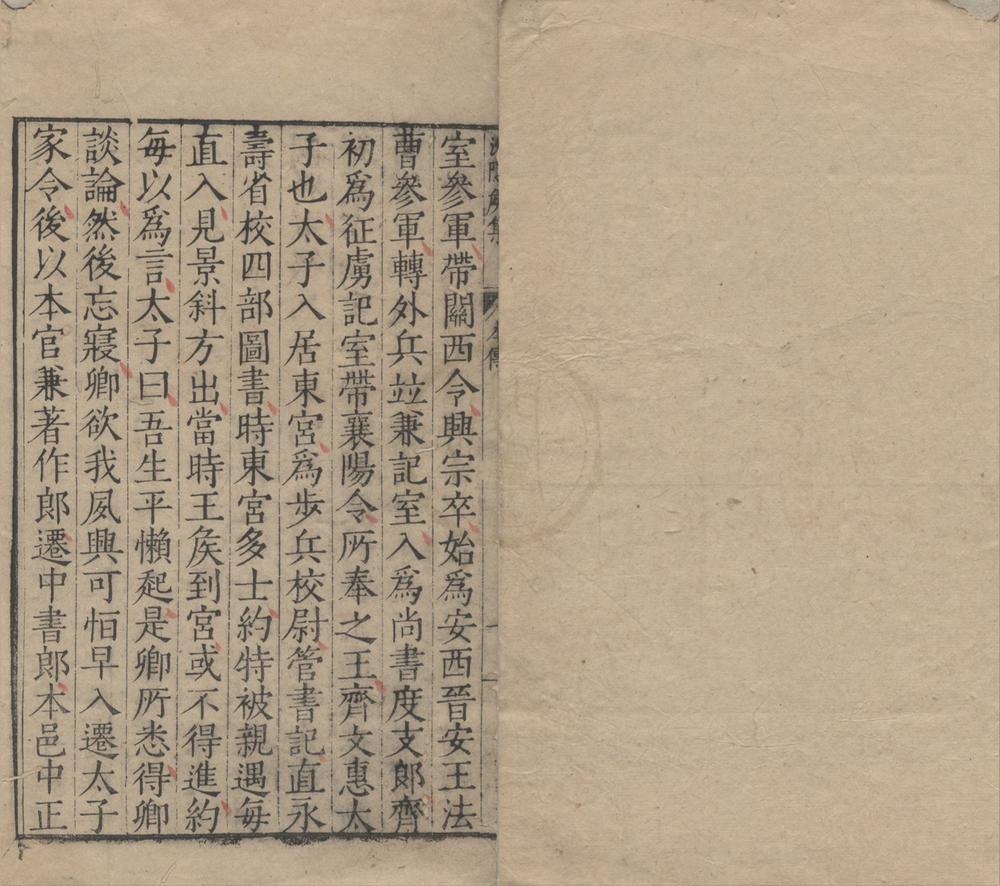 室參軍帶關西令興宗卒始爲安西晉安王法
曹參軍轉外兵並兼記室入爲尚書度支郎齊
初爲征虜記室帶襄陽令所奉之王齊文惠太
子也太子入居東宮爲步兵校尉管書記直永
壽省校四部圖書時東宮多士約特被親遇每
直入見景斜方出當時王矦到宮或不得進約
每以爲言太子曰吾生平懶起是卿所悉得卿
談論然後忘寢卿欲我夙興可恒早入遷太子
家令後以本官兼著作郎遷中書郎本邑中正